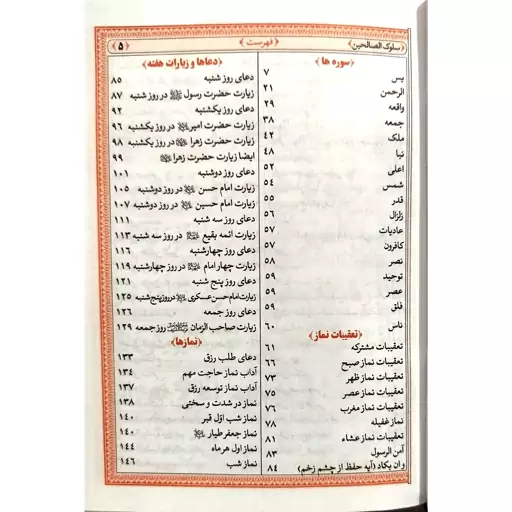 ﴿سلوک الصالحین﴾ ﴿فهرست﴾ ﴿۵﴾
﴿سوره ها﴾
یس ۷
الرحمن ۲۱
واقعه ۲۹
جمعه ۳۸
ملک ۴۲
نبا ۴۸
اعلی ۵۲
شمس ۵۴
قدر ۵۵
زلزال ۵۶
عادیات ۵۷
کافرون ۵۷
نصر ۵۸
توحید ۵۹
عصر ۵۹
فلق ۵۹
ناس ۶۰
﴿تعقیبات نماز﴾
تعقیبات مشترکه ۶۱
تعقیبات نماز صبح ۶۶
تعقیبات نماز ظهر ۷۳
تعقیبات نماز عصر ۷۵
تعقیبات نماز مغرب ۷۶
نماز غفیله ۷۸
تعقیبات نماز عشاء ۸۱
آمن الرسول ۸۳
و ان یکاد (آیه حفظ از چشم زخم) ۸۴
﴿دعاها و زیارات هفته﴾
دعای روز شنبه ۸۵
زیارت حضرت رسول در روز شنبه ۸۷
دعای روز یکشنبه ۹۲
زیارت حضرت امیر در روز یکشنبه ۹۶
زیارت حضرت زهرا در روز یکشنبه ۹۸
ایضا زیارت حضرت زهرا ۹۹
دعای روز دوشنبه ۱۰۱
زیارت امام حسن در روز دوشنبه ۱۰۵
زیارت امام حسین در روز دوشنبه ۱۰۷
دعای روز سه شنبه ۱۱۱
زیارت ائمه بقیع در روز سه شنبه ۱۱۳
دعای روز چهارشنبه ۱۱۶
زیارت چهار امام در روز چهارشنبه ۱۱۹
دعای روز پنج شنبه ۱۲۱
زیارت امام حسن عسکری در روز پنج شنبه ۱۲۵
دعای روز جمعه ۱۲۶
زیارت صاحب الزمان روز جمعه ۱۲۹
﴿نمازها﴾
دعای طلب رزق ۱۳۳
آداب نماز حاجت مهم ۱۳۴
آداب نماز توسعه رزق ۱۳۷
نماز در شدت و سختی ۱۳۸
نماز شب اوّل قبر ۱۴۰
نماز جعفر طیار ۱۴۰
نماز اول هر ماه ۱۴۴
نماز شب ۱۴۶